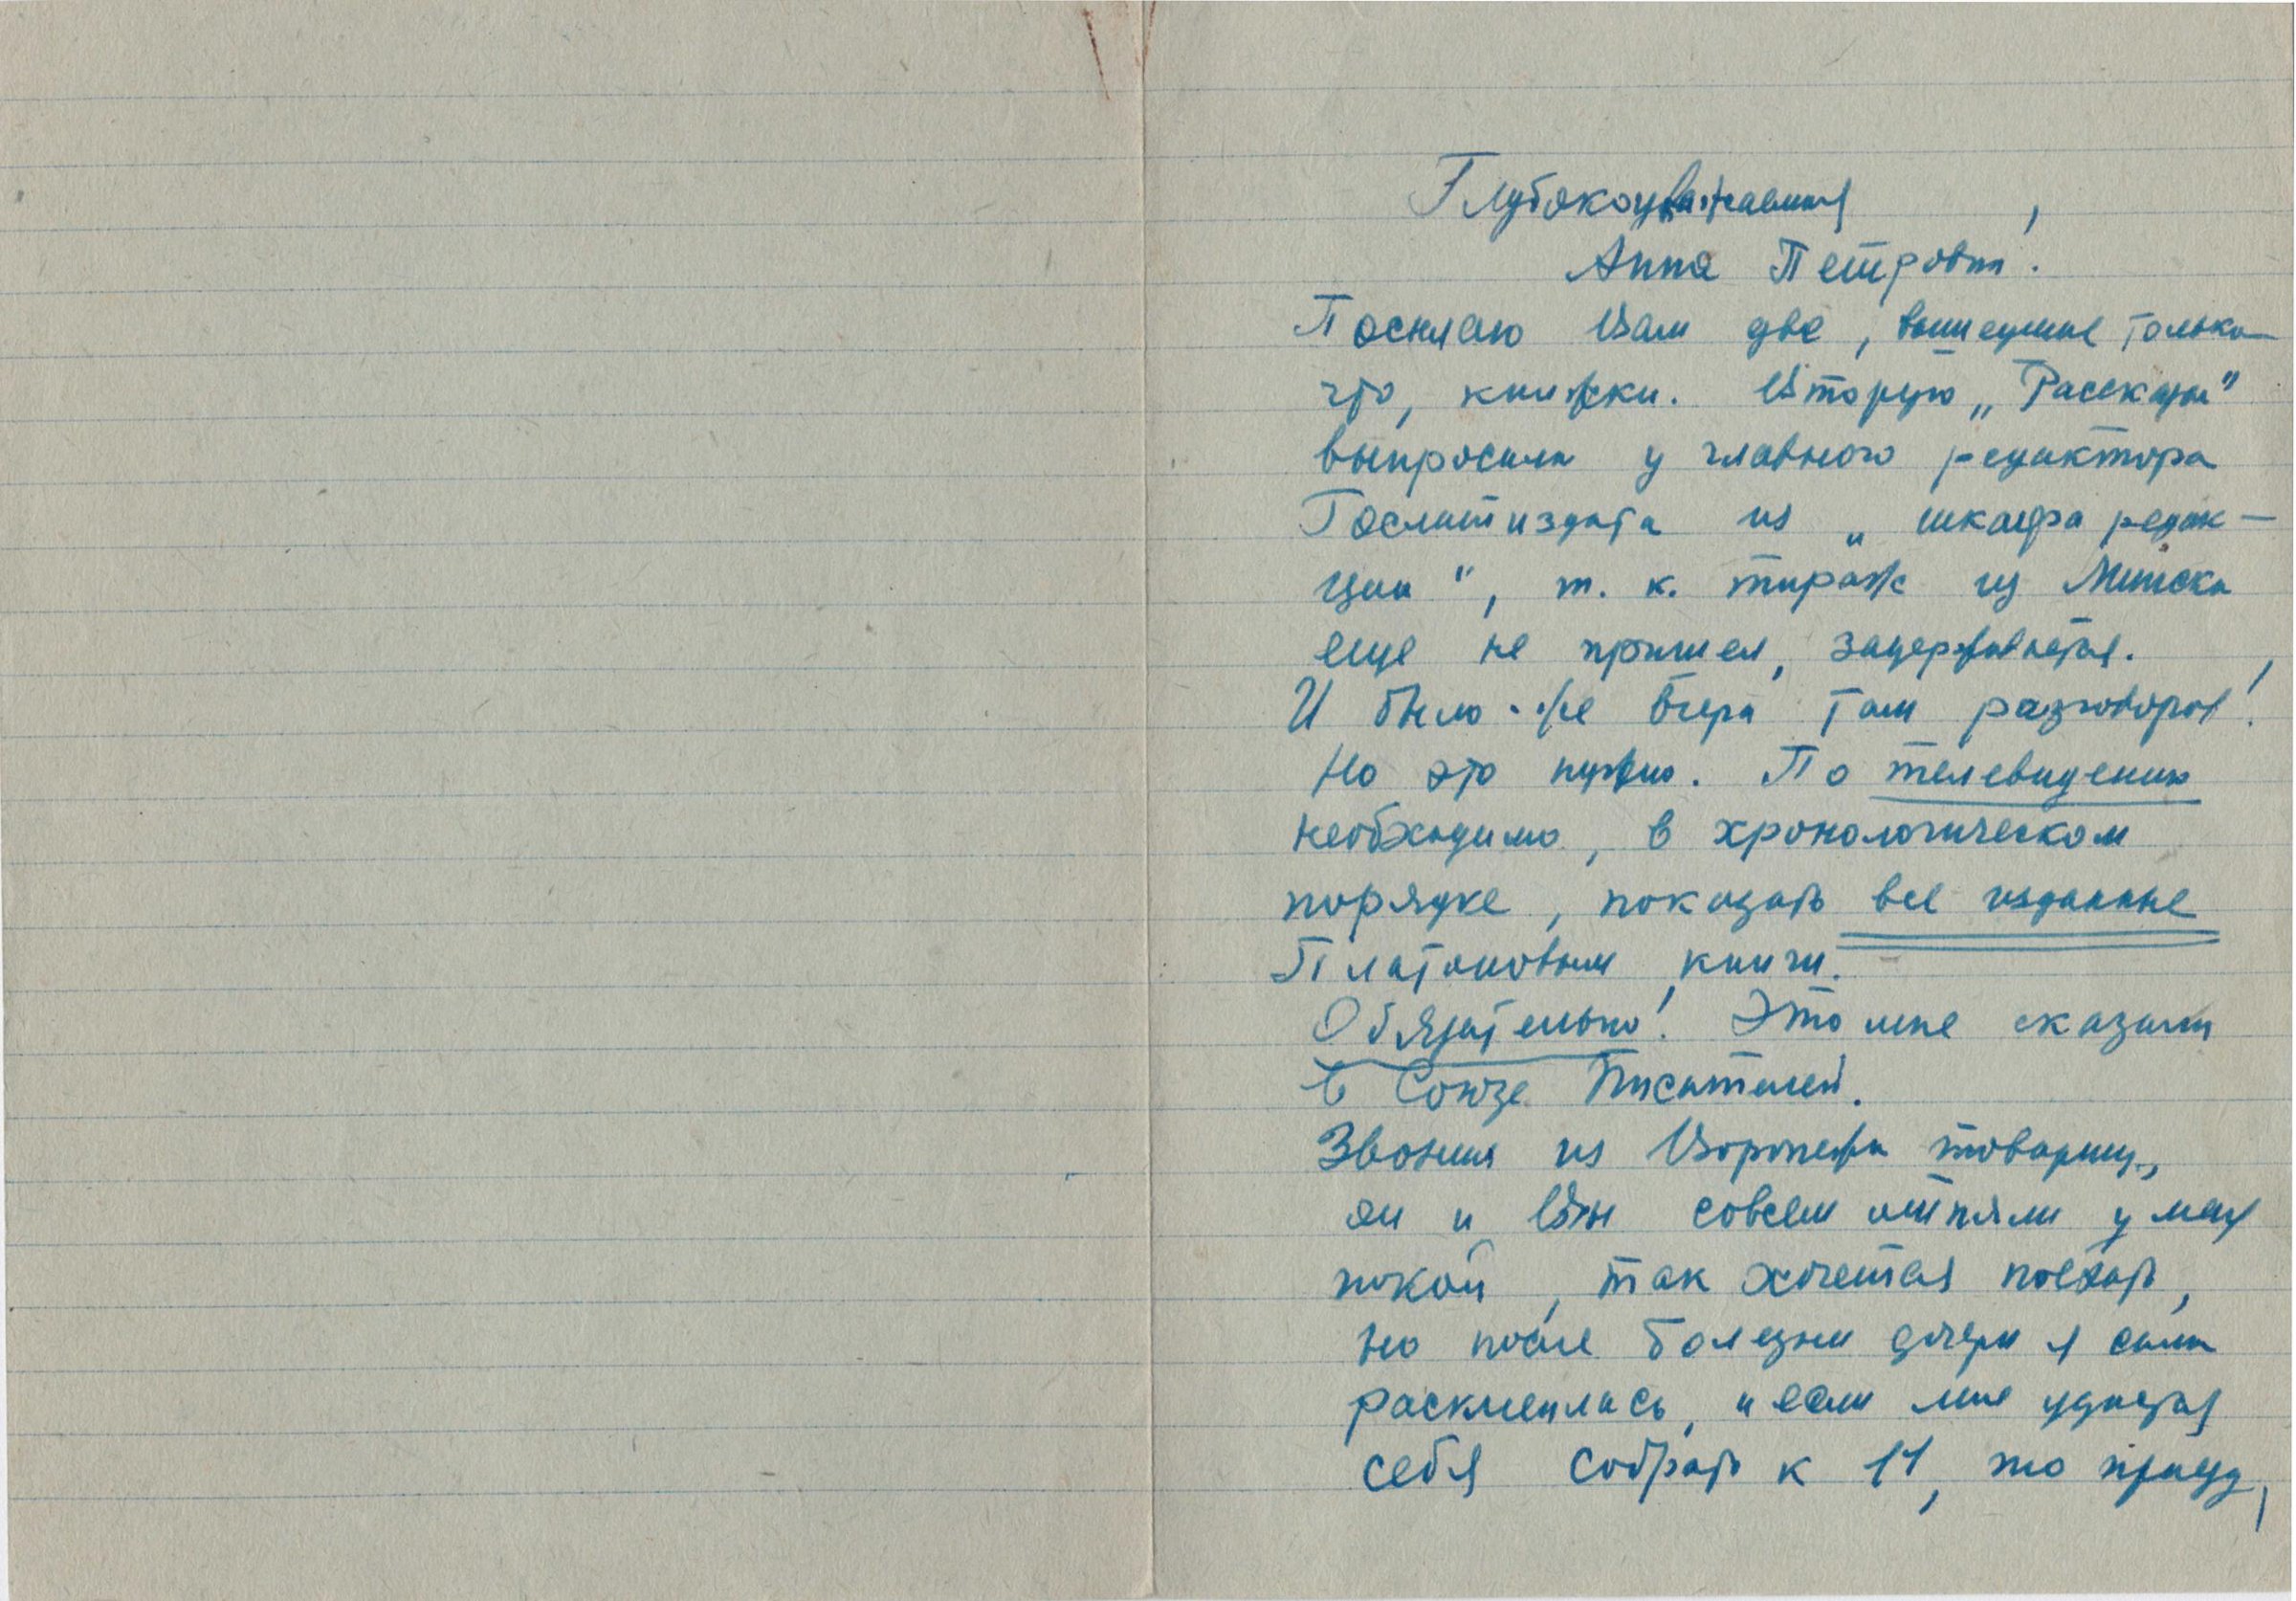 Глубокоуважаемая
Анна Петровна!
Посылаю Вам две, вышедшие только
что, книжки. Вторую „Рассказы"
выпросила у главного редактора
Гослитиздата из „шкафа редак-
ции", т. к. тираж из Минска
еще не пришел, задерживается.
И было же вчера там разговоров!
Но это нужно. По телевидению
необходимо, в хронологическом
порядке, показать все изданные
Платоновым книги.
Обязательно! Это мне сказали
в Союзе Писателей.
Звонил из Воронежа товарищ,
он и Вы совсем отняли у меня
покой, так хочется поехать,
но после болезни дочери я сама
расклеилась, и если мне удастся
себя собрать к 11, то приеду,